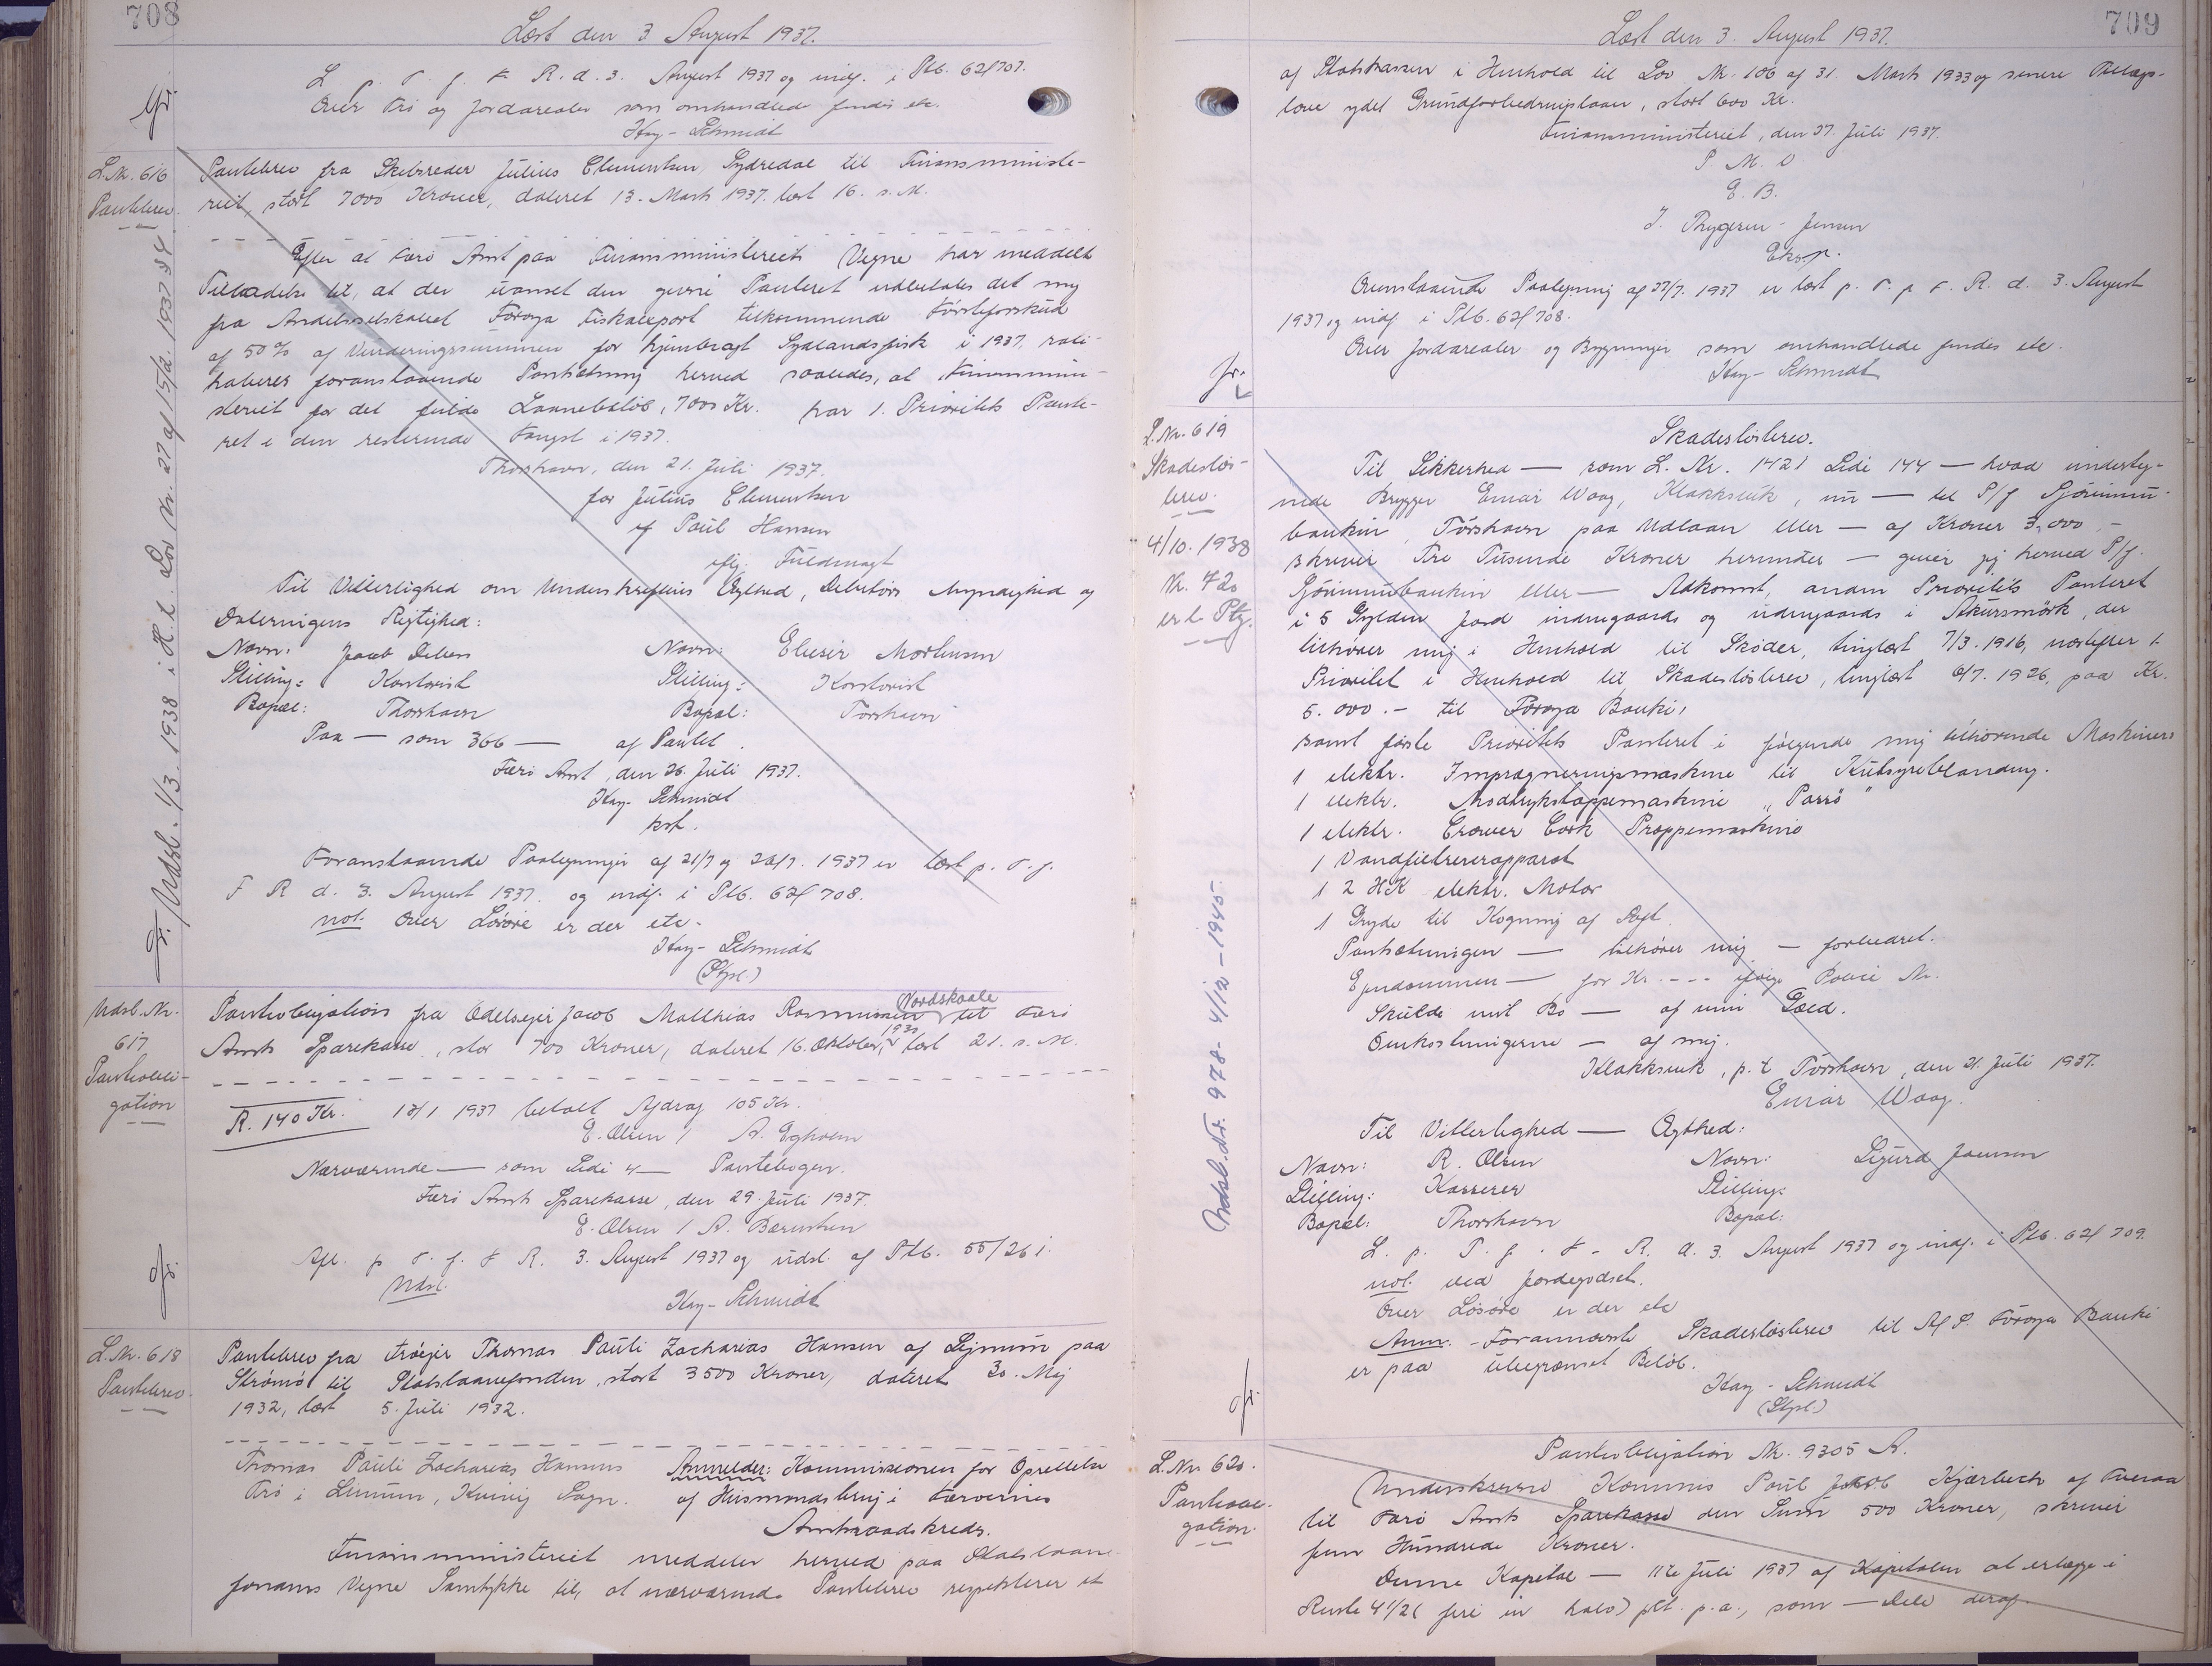 708
Læst den 3 August 1937.
L p. T. f. F. R. d. 3. August 1937 og indf. i Ptb. 62/707.
Over Trö og Jordarealer som omhandlede findes etc.
Kay-Schmidt
L.Nr. 616
Pantebrev.
Pantebrev fra Skibsreder Julius Clementsen, Sydredal til Finansministe-
riet, stort 7000 Kroner, dateret 13. Marts 1937. læst 16. s. M.
Efter at Færö Amt paa Finansministeriets Vegne har meddelt
Tilladelse til, at der uanset den givne Panteret udbetales det mig
fra Andelsselskabet Föroya Fiskaexport tilkommende Försteforskud
af 50% af Vurderingssummen for hjembragt Sydlandsfisk i 1937. rati-
haberes foranstaaende Pantsætning herved saaledes, at Finansmini-
steriet for det fulde Laanebelöb, 7000 Kr. har 1. Prioritets Pante-
ret i den resterende Fangst i 1937.
Thorshavn, den 21. Juli 1937.
for Julius Clementsen
Paul Hansen
iflg. Fuldmagt
Til Vitterlighed om Underskriftens Ægthed, Debitors Myndighed og
Dateringens Rigtighed:
Navn: Jacob Navn: Elieser Mortensen
Stilling: Kontorist Stilling: Kontorist
Bopæl: Thorshavn Bopæl: Torshavn
Paa — som 366 — af Pantet.
Færö Amt, den 26. Juli 1937.
Kay-Schmidt
kst.
Foranstaaende Paategninger af 21/7 og 26/7. 1937 er læst p. T. f.
F R d. 3. August 1937. og indf. i Ptb. 62/708.
not. Over Lösöre er der etc.
Kay-Schmidt
(Stpl.)
Udsl. 1/3. 1938 i H. t. Lov Nr. 27 af 15/2. 1937 § 4
Udsl. Nr.
617
Pantobli-
gation
Pantobligation fra Odelsejer Jacob Matthias Rasmussen Nordskaale til Færö
Amts Sparekasse, stor 700 Kroner, dateret 16. Oktober, 1930 læst 21. s. M.
R. 140 Kr. 13/1 1937 betalt Afdrag 105 Kr.
E. Olsen / A. Egholm
Nærværende — som Sidi 4 — Pantebogen.
Færö Amts Sparekasse, den 29. Juli 1937.
E. Olsen / A. Bærentsen
Afl. p T. f. F R. 3. August 1937 og udsl. af Ptb. 55/261.
Udsl.
Kay-Schmidt
L.Nr. 618
Pantebrev.
Pantebrev fra Tröejer Thomas Pauli Zacharias Hansen af Lejnum paa
Strömö til Statslaanefonden, stort 3500 Kroner, dateret 30. Maj
1932, læst 5. Juli 1932.
Thomas Pauli Zacharias Hansens Anmelder: Kommissionen for Oprettelse
Trö i Leinum, Kvivig Sogn. af Husmandsbrug i Færöernes
Amtraadskreds.
Finansministeriet meddeler herved paa Statslaane-
fondens Vegne Samtykke til, at nærværende Pantebrev respekterer et
709
Læst den 3. August 1937.
af Statskassen i Henhold til Lov Nr. 106 af 31. Marts 1933 og senere Tillægs-
love ydet Grundforbedringslaan, stort 600 Kr.
Finansministeriet, den 27. Juli 1937.
P. M. V
E. B.
J. Thygesen-Jensen
Eksp.
Ovenstaaende Paategning af 27/7. 1937 er læst p. T. f. F. R. d. 3. August
1937 og indf. i Ptb. 62/708.
Over Jordarealer og Bygninger som omhandlede findes etc.
Kay-Schmidt
L.Nr. 619
Skadeslös-
brev.
4/10. 1938
Nr. 720
er l. Ptg.
Skadeslösbrev.
Til Sikkerhed — som L. Nr. 1421 Sidi 144 — hvad underteg-
nede Brygger Einar Waag, Klakksvik, nu — til P/f Sjóvinnu-
bankin, Tórshavn paa Udlaan eller — af Kroner 3,000.-
skriver Tre Tusinde Kroner herunder — giver jeg herved P/f.
Sjóvinnubankin eller — Adkomst, anden Prioritets Panteret
i 5 Gylden Jord indengaards og udengaards i Akursmörk, der
tilhörer mig i Henhold til Sköder, tinglæst 7/3. 1916, næstefter 1.
Prioritet i Henhold til Skadeslösbrev, tinglæst 6/7. 1926, paa Kr.
5.000.- til Föroya Banki,
samt förste Prioritets Panteret i fölgende mig tilhörende Maskiner:
1 elektr. Imprægneringsmaskine til Kulsyreblanding.
1 elektr. Modtrykstappemaskine "Parrö"
1 elektr. Crower Cork Proppemaskine
1 Vandfiltrererapparat
1 2 HK elektr. Motor
1 Gryde til Kogning af Saft.
Pantsætningen — tilhörer mig — forbedret.
Ejendommen — for Kr. --- iflge. Police Nr.
Skulde mit Bo — af min Gæld.
Omkostningerne — af mig.
Klakksvik, p.t Tórshavn, den 21. Juli 1937.
Einar Waag.
Til Vitterlighed — Ægthed:
Navn: R. Olsen Navn: Sigurd Joensen
Stilling: Kasserer Stilling:
Bopæl: Thorshavn Bopæl:
L. p. T. f. F. R. d. 3. August 1937 og indf. i Ptb. 62/709.
not. ved Jordegodset.
Over Lösöre er der etc
Anm. - Forannævnte Skadeslösbrev til A/S. Föroya Banki
er paa ubegrænset Belöb.
Kay-Schmidt
(Stpl.)
Udsl. d.d. 978 - 4/12 - 1945.
L.Nr. 620.
Pantobli-
gation.
Pantobligation Nr. 9305 A.
Underskrevne Kommis Poul Jakob Kjærbech af Tveraa
til Færö Amts Sparekasse den Sum 500 Kroner, skriver
fem Hundrede Kroner.
Denne Kapital — 11te Juli 1937 af Kapitalen at erlægge i
Rente 4 1/2 (fire en halv) pCt. p.a., som — Dele deraf.